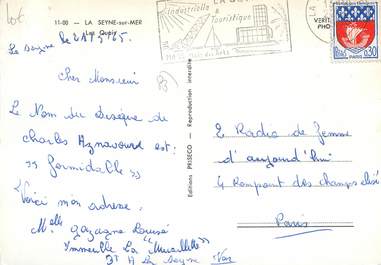 lot
11-00 - LA SEYNE-sur-MER
Les Quais
La Seyne le
Cher Monsieur
Le Nom du disque de
charles Aznavourd est:
"formidable"
Voici mon adresse.
Melle
Immeuble La "Muraillette"
La Seyne Var
Editions PRISECO - Reproduction interdite
Industrielle
&
Touristique
VERIT
PHO
0,30
PARIS
E Radio de femme
d'aujourd'hui
4 Rompont des champs elisé
Paris